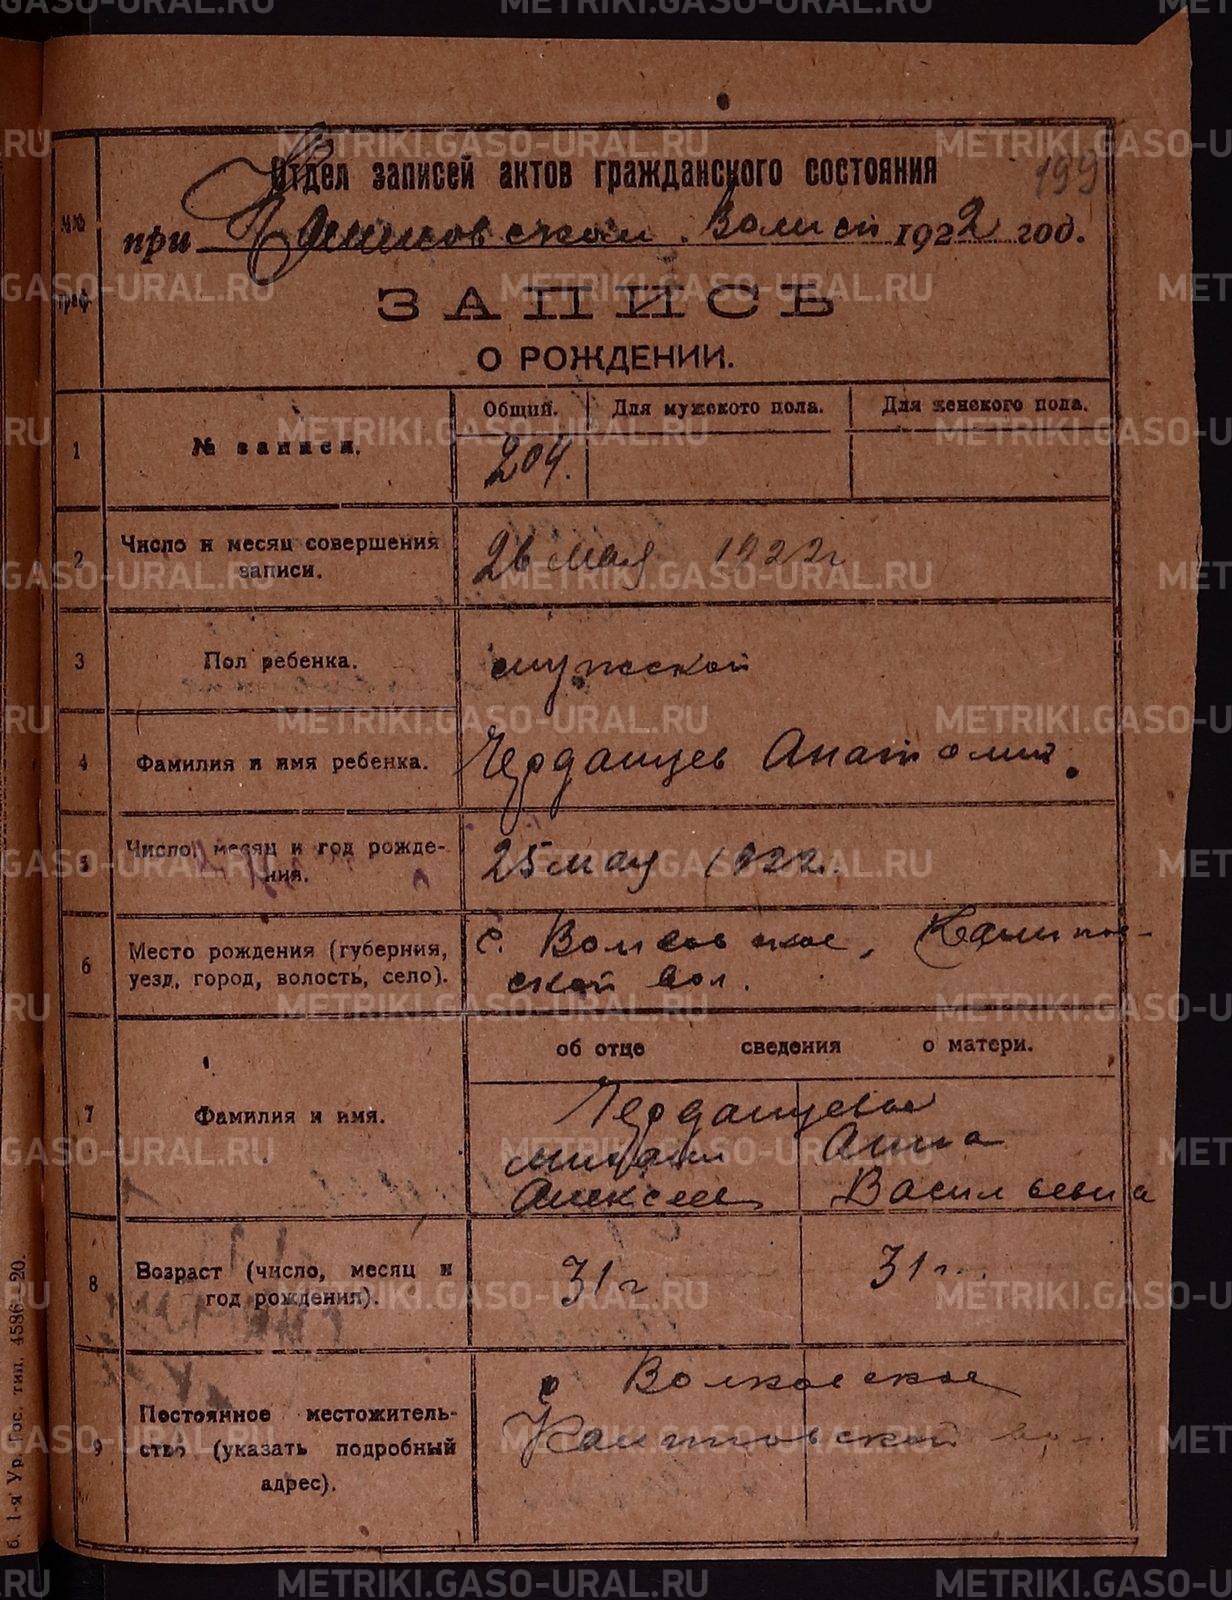 199
Отдел записей актов гражданского состояния
при Волисп 1922 год.
№№ граф
ЗАПИСЬ
О РОЖДЕНИИ.
Общий. Для мужского пола. Для женского пола.
1 № записи. 204.
2 Число и месяц совершения записи. 26 мая 1922 г
3 Пол ребенка. мужской
4 Фамилия и имя ребенка. Чердащцев Анатолий.
5 Число, месяц и год рождения. 25 мая 1922 г.
6 Место рождения (губерния, уезд, город, волость, село). с. Волковское,
ской вол.
об отце сведения о матери.
7 Фамилия и имя. Черданцевы
Михаил Анна
Алексеев Васильевна
8 Возраст (число, месяц и год рождения). 31 г 31 г.
9 Постоянное местожительство (указать подробный адрес). с Волковское
б. 1-я Ур. Гос. тип. 4586—20.
METRIKI.GASO-URAL.RU